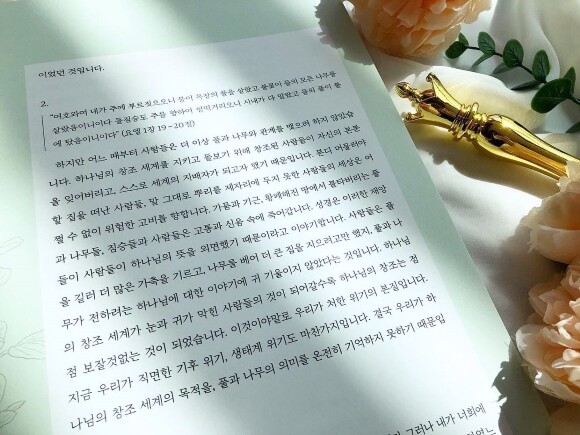 이었던 것입니다.
2.
"여호와여 내가 주께 부르짖으오니 불이 목장의 풀을 살랐고 불꽃이 들의 모든 나무를
살랐음이니이다 들짐승도 주를 향하여 헐떡거리오니 시내가 다 말랐고 들의 풀이 불
에 탔음이니이다" (요엘 1장 19-20절)
하지만 어느 때부터 사람들은 더 이상 풀과 나무와 관계를 맺으려 하지 않았습
니다. 하나님의 창조 세계를 지키고 돌보기 위해 창조된 사람들이 자신의 본분
을 잊어버리고, 스스로 세계의 지배자가 되고자 했기 때문입니다. 본디 어울려야
할 짚을 떠난 사람들, 말 그대로 뿌리를 제자리에 두지 못한 사람들의 세상은 어
쩔 수 없이 위험한 고비를 향합니다. 가뭄과 기근, 황폐해진 땅에서 불타버리는 들
과 나무들, 짐승들과 사람들은 고통과 신음 속에 죽어갑니다. 성경은 이러한 재앙
들이 사람들이 하나님의 뜻을 외면했기 때문이라고 이야기합니다. 사람들은 풀
을 길러 더 많은 가축을 기르고, 나무를 베어 더 큰 집을 지으려고만 했지, 풀과 나
무가 전하려는 하나님에 대한 이야기에 귀 기울이지 않았다는 것입니다. 하나님
의 창조 세계가 눈과 귀가 막힌 사람들의 것이 되어갈수록 하나님의 창조는 점
점 보잘것없는 것이 되었습니다. 이것이야말로 우리가 처한 위기의 본질입니다.
지금 우리가 직면한 기후 위기, 생태계 위기도 마찬가지입니다. 결국 우리가 하
나님의 창조 세계의 목적을, 풀과 나무의 의미를 온전히 기억하지 못하기 때문입
그러나 내가 너희에